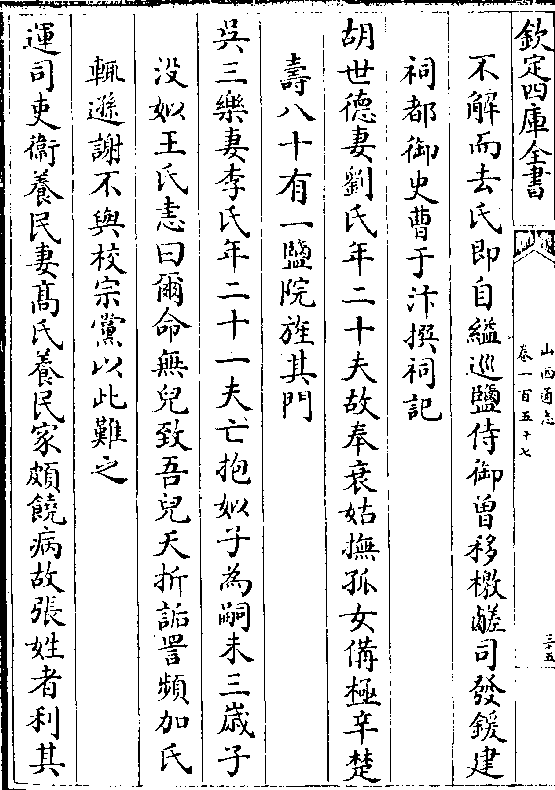 欽定四庫全書
山西通志
卷一百五十七
三五
不解而去氏即自縊巡鹽侍御曾移檄鹺司發鍰建
祠都御史曹于汴撰祠記
胡世德妻劉氏年二十夫故奉衰姑撫孤女備極辛楚
壽八十有一鹽院旌其門
吳三樂妻李氏年二十一夫亡抱姒子為嗣未三歲子
沒姒王氏恚曰爾命無兒致吾兒夭折詬詈頻加氏
輒遜謝不與校宗黨以此難之
運司吏衛養民妻高氏養民家頗饒病故張姓者利其